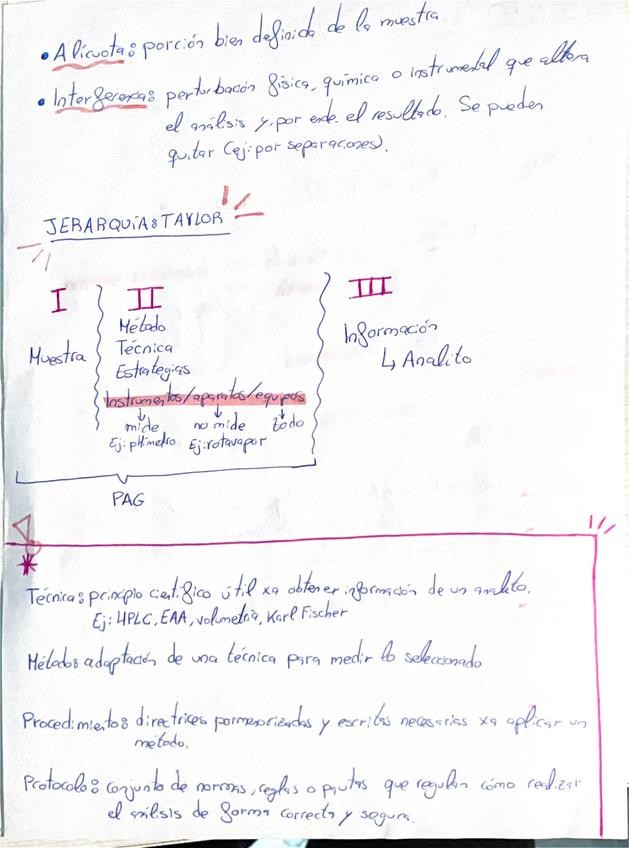 • Alícuota: porción bien definida de la muestra.
• Interferencia: perturbación física, química o instrumental que altera
el análisis y, por ende, el resultado. Se pueden
quitar (ej: por separaciones).
JERARQUÍA: TAYLOR
I
Muestra
II
Método
Técnica
Estrategias
Instrumentos/aparatos/equipos
↓ ↓ ↓
mide no mide todo
Ej: pHmetro Ej: rotavapor
III
Información
↳ Analito
PAG
*
Técnica: principio científico útil xa obtener información de un analito.
Ej: HPLC, EAA, volumetría, Karl Fischer
Método: adaptación de una técnica para medir lo seleccionado
Procedimiento: directrices pormenorizadas y escritas necesarias xa aplicar un
método.
Protocolo: conjunto de normas, reglas o pautas que regulan cómo realizar
el análisis de forma correcta y segura.